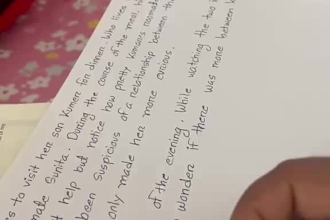 s to visit her son Kumar for dinner. Who lives
mate Sunita. During the course of the meal, h
t help but notice how pretty Kumar's roommate
been suspicious of a relationship between th
only made her more curious.
of the evening. While watching the two
wonder if there was more between k